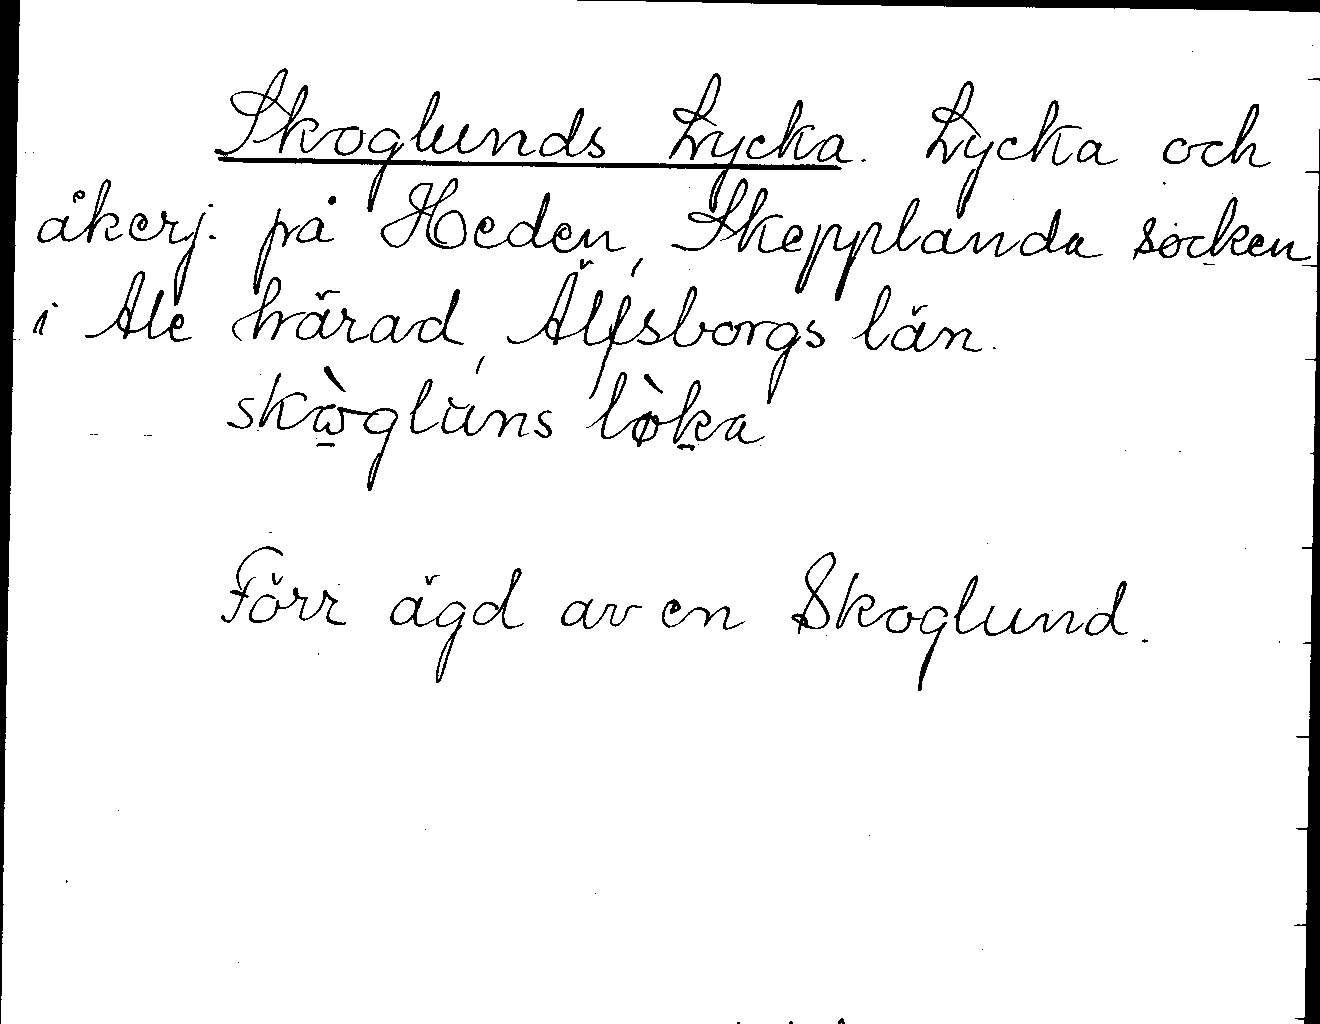 Skoglunds Lycka. Lycka och
åkerj. på Heden, Skepplanda socken
i Ale härad, Älfsborgs län.
skòglùns lø̀ka
Förr ägd av en Skoglund.